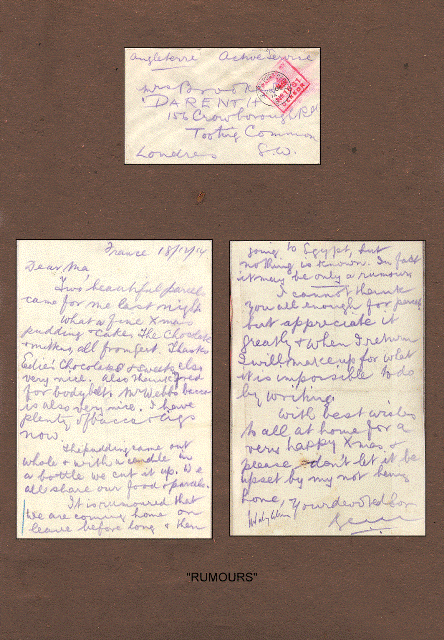 Angleterre Active Service
Mrs Brooke
"DARENTH"
156 Crowborough Rd
Tooting Common
Londres S.W.
France 18/12/14
Dear Ma
Two beautiful parcels
came for me last night
What a fine Xmas
pudding & cakes. The Chocolate
& mittens all from gert. Thanks
Edie's Chocolate & sweets also
very nice, also thank
for body belt. Mr Webbs bacca
is also very nice, I have
plenty of bacca & cigs
now.
The pudding came out
whole & with a candle in
a bottle we cut it up. We
all share our food & parcels.
It is rumoured that
we are coming home on
leave before long & then
going to Egypt, but
nothing is known. In fact
it may be only a rumour
I cannot thank
you all enough for parcels
but appreciate it
greatly & when I return
I will make up for what
it is impossible to do
by writing.
With best wishes
to all at home for a
very happy Xmas &
please don't let it be
upset by my not being
home, Your devoted Son
"RUMOURS"